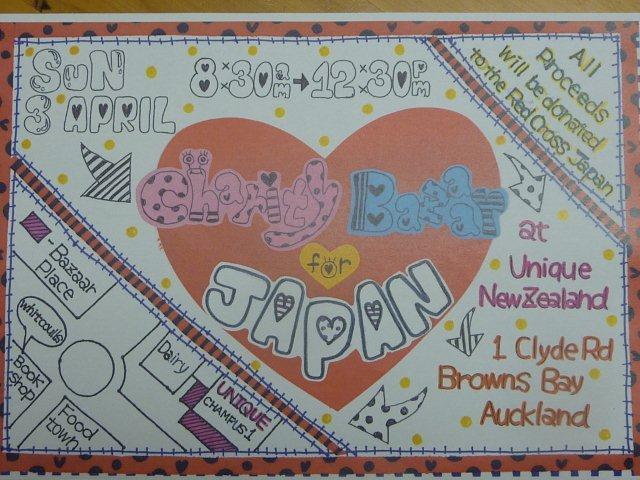 SUN
3 APRIL
8:30am → 12:30pm
All
Proceeds
will be donated
to the Red Cross Japan
Charity Bazaar
for
JAPAN
at
Unique
New Zealand
1 Clyde Rd
Browns Bay
Auckland
- Bazaar
Place
Whitcoulls
Book
shop
Food
town
Dairy
UNIQUE
CHAMPUS.1